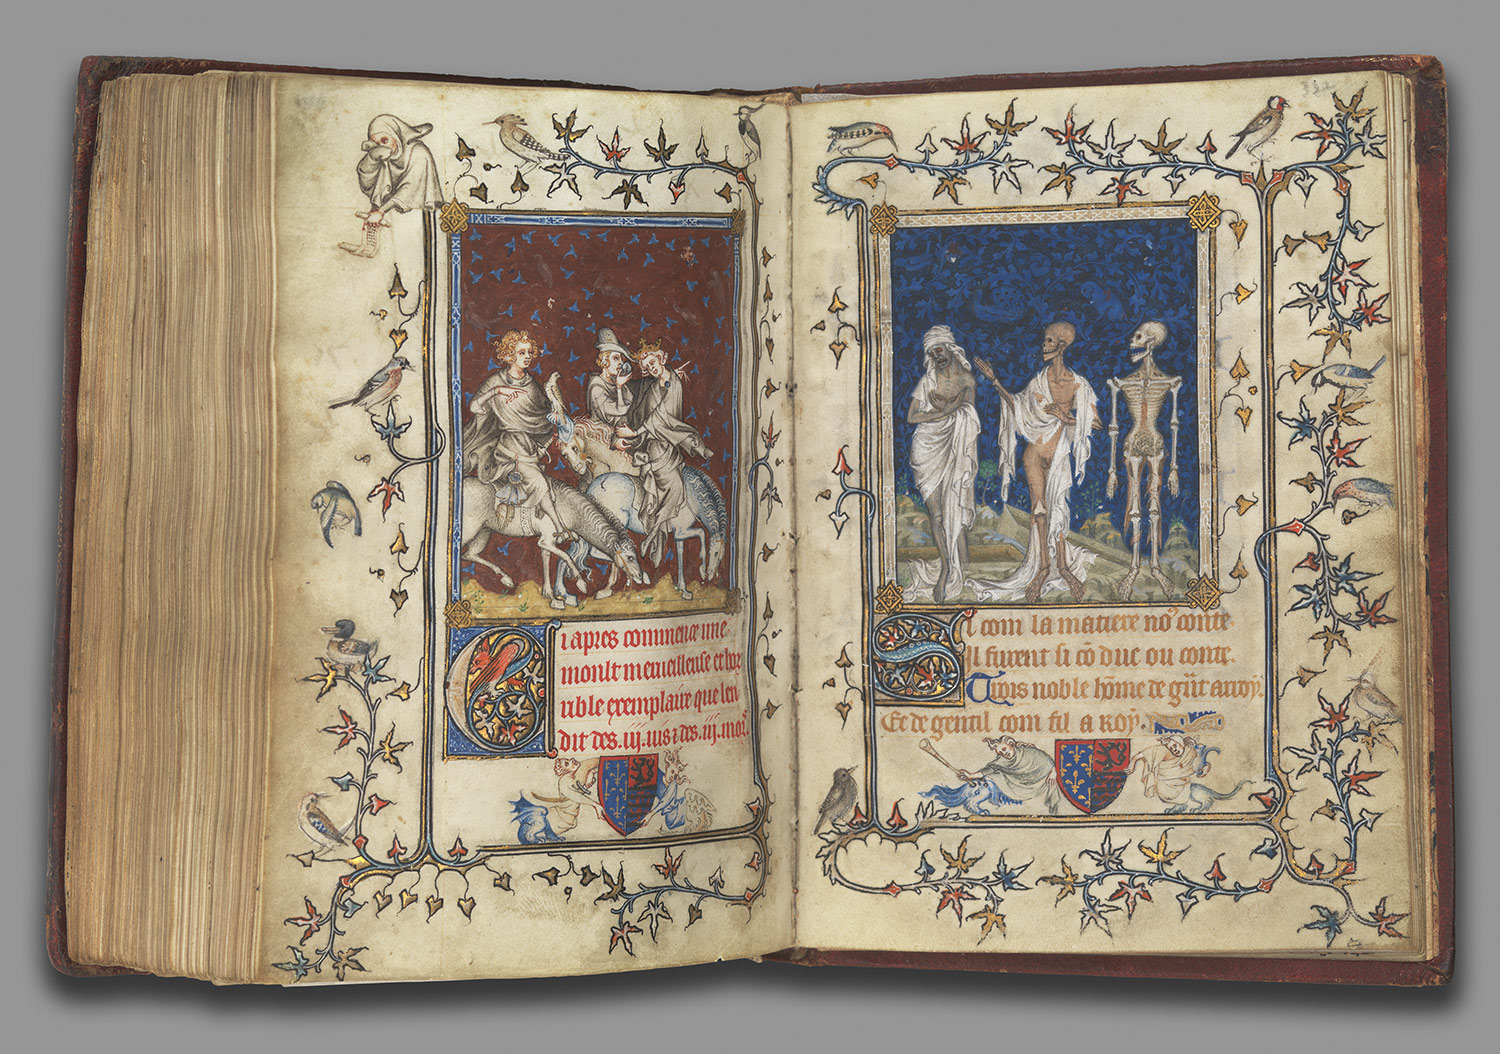 Ci apres commence une
moult merueilleuse et hor
rible exemplaire que len
dit des .iij. uis ⁊ des .iij. moꝛˢ.
332
Si com la matiere noˢ conte
Il furent si cō duc ou conte.
Trois noble hōme de gͣnt arroy.
Et de gentil com fil a roy.